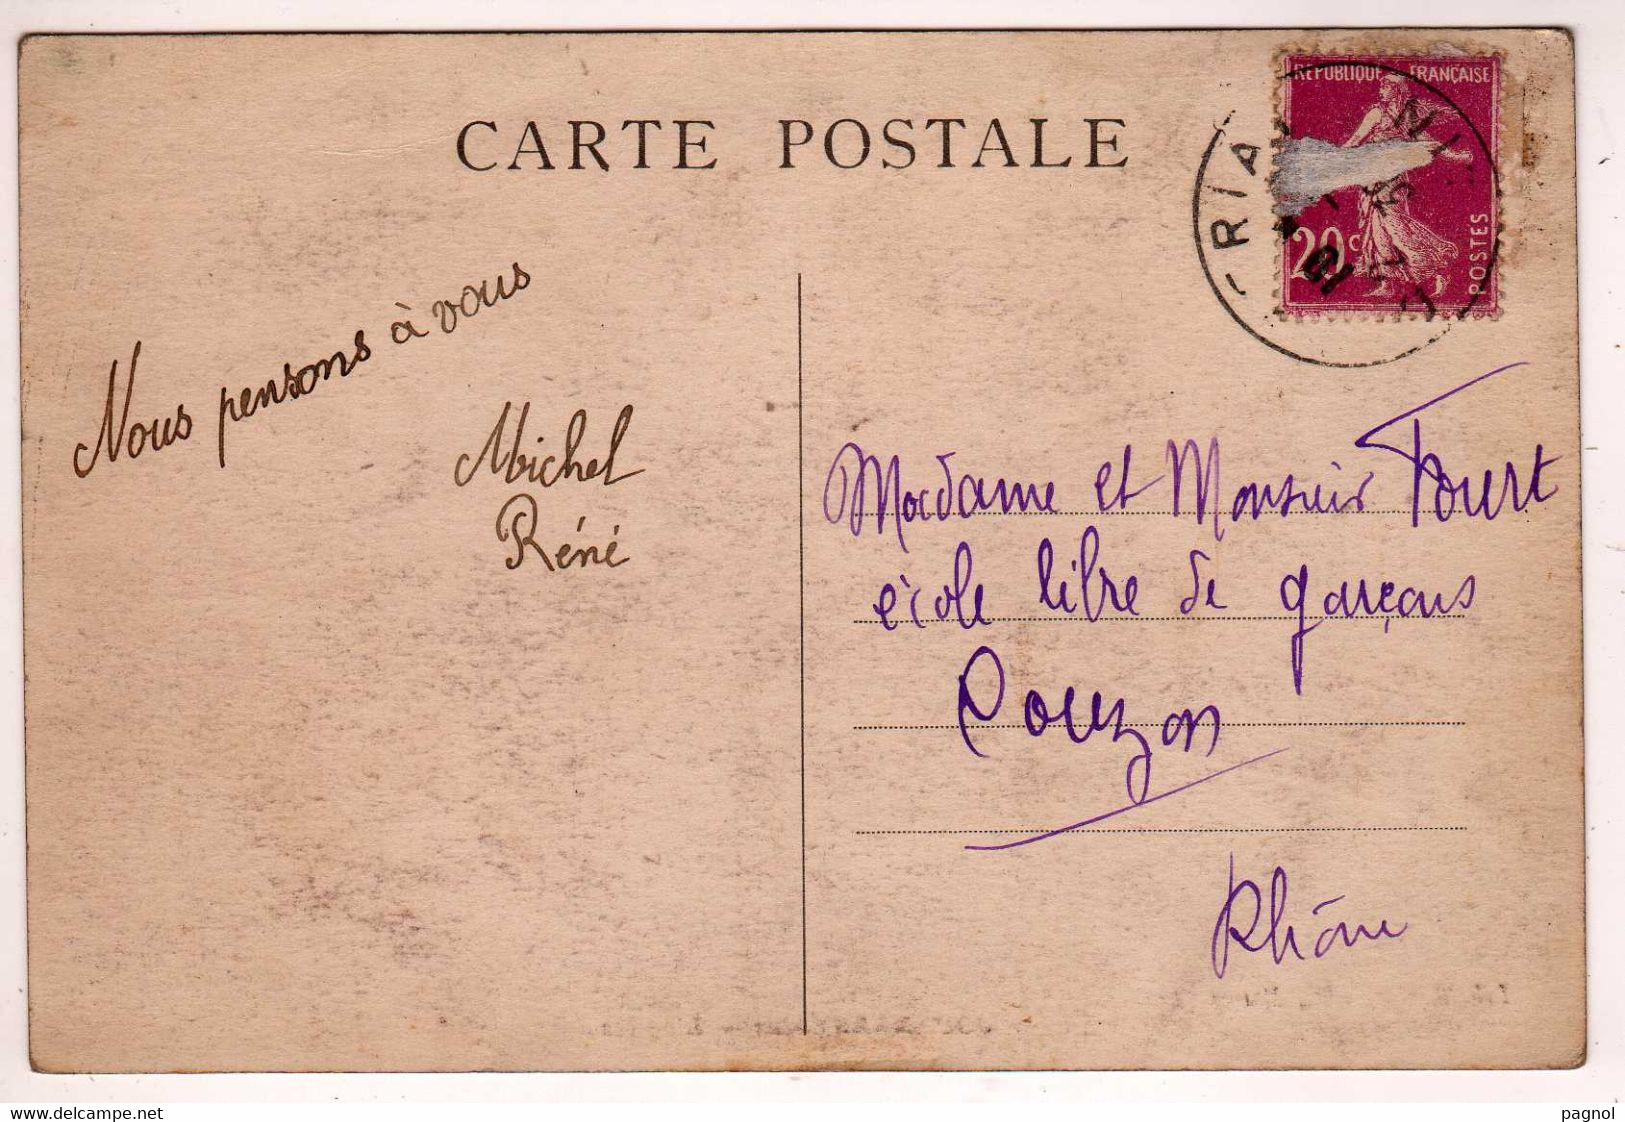 CARTE POSTALE
RÉPUBLIQUE FRANÇAISE
20c
POSTES
Nous pensons à vous
Michel
Réné
Madame et Monsieur
école libre de garçons
Couzon
Rhône
www.delcampe.net
pagnol